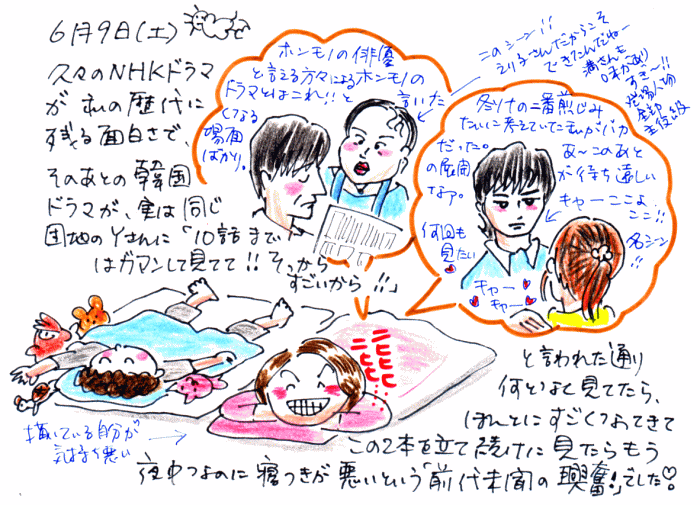 6月9日(土)
久々のNHKドラマ
が私の歴代に
残る面白さで、
そのあとの韓国
ドラマが、実は同じ
団地のYさんに「10話まで
はガマンして見てて!!そっから
すごいから!!」
ホンモノの俳優
と言える方々によるホンモノの
ドラマとはこれ!!と
言いた
くなる
場面
ばかり。
このシーン!!
えり子さんだからこそ
できてこんだねー
満さんも
味があり
すぎ〜!!
登場人物
全部
主役級
冬ソナの二番煎じみ
たいに考えていた私がバカ
だった。
の展開
なァ。
何回も
見たい
あ〜このあと
が待ち遠しい
キャーここよ
ここ!!
名シーン
!!
キャー
キャー
ヒヒヒ
ヒヒヒ
描いている自分が
気持ち悪い
と言われた通り
何となく見てたら、
ほんとにすごくなってきて
この2本を立て続けに見たらもう
夜中なのに寝つきが悪いという「前代未聞の興奮!」でした♡。